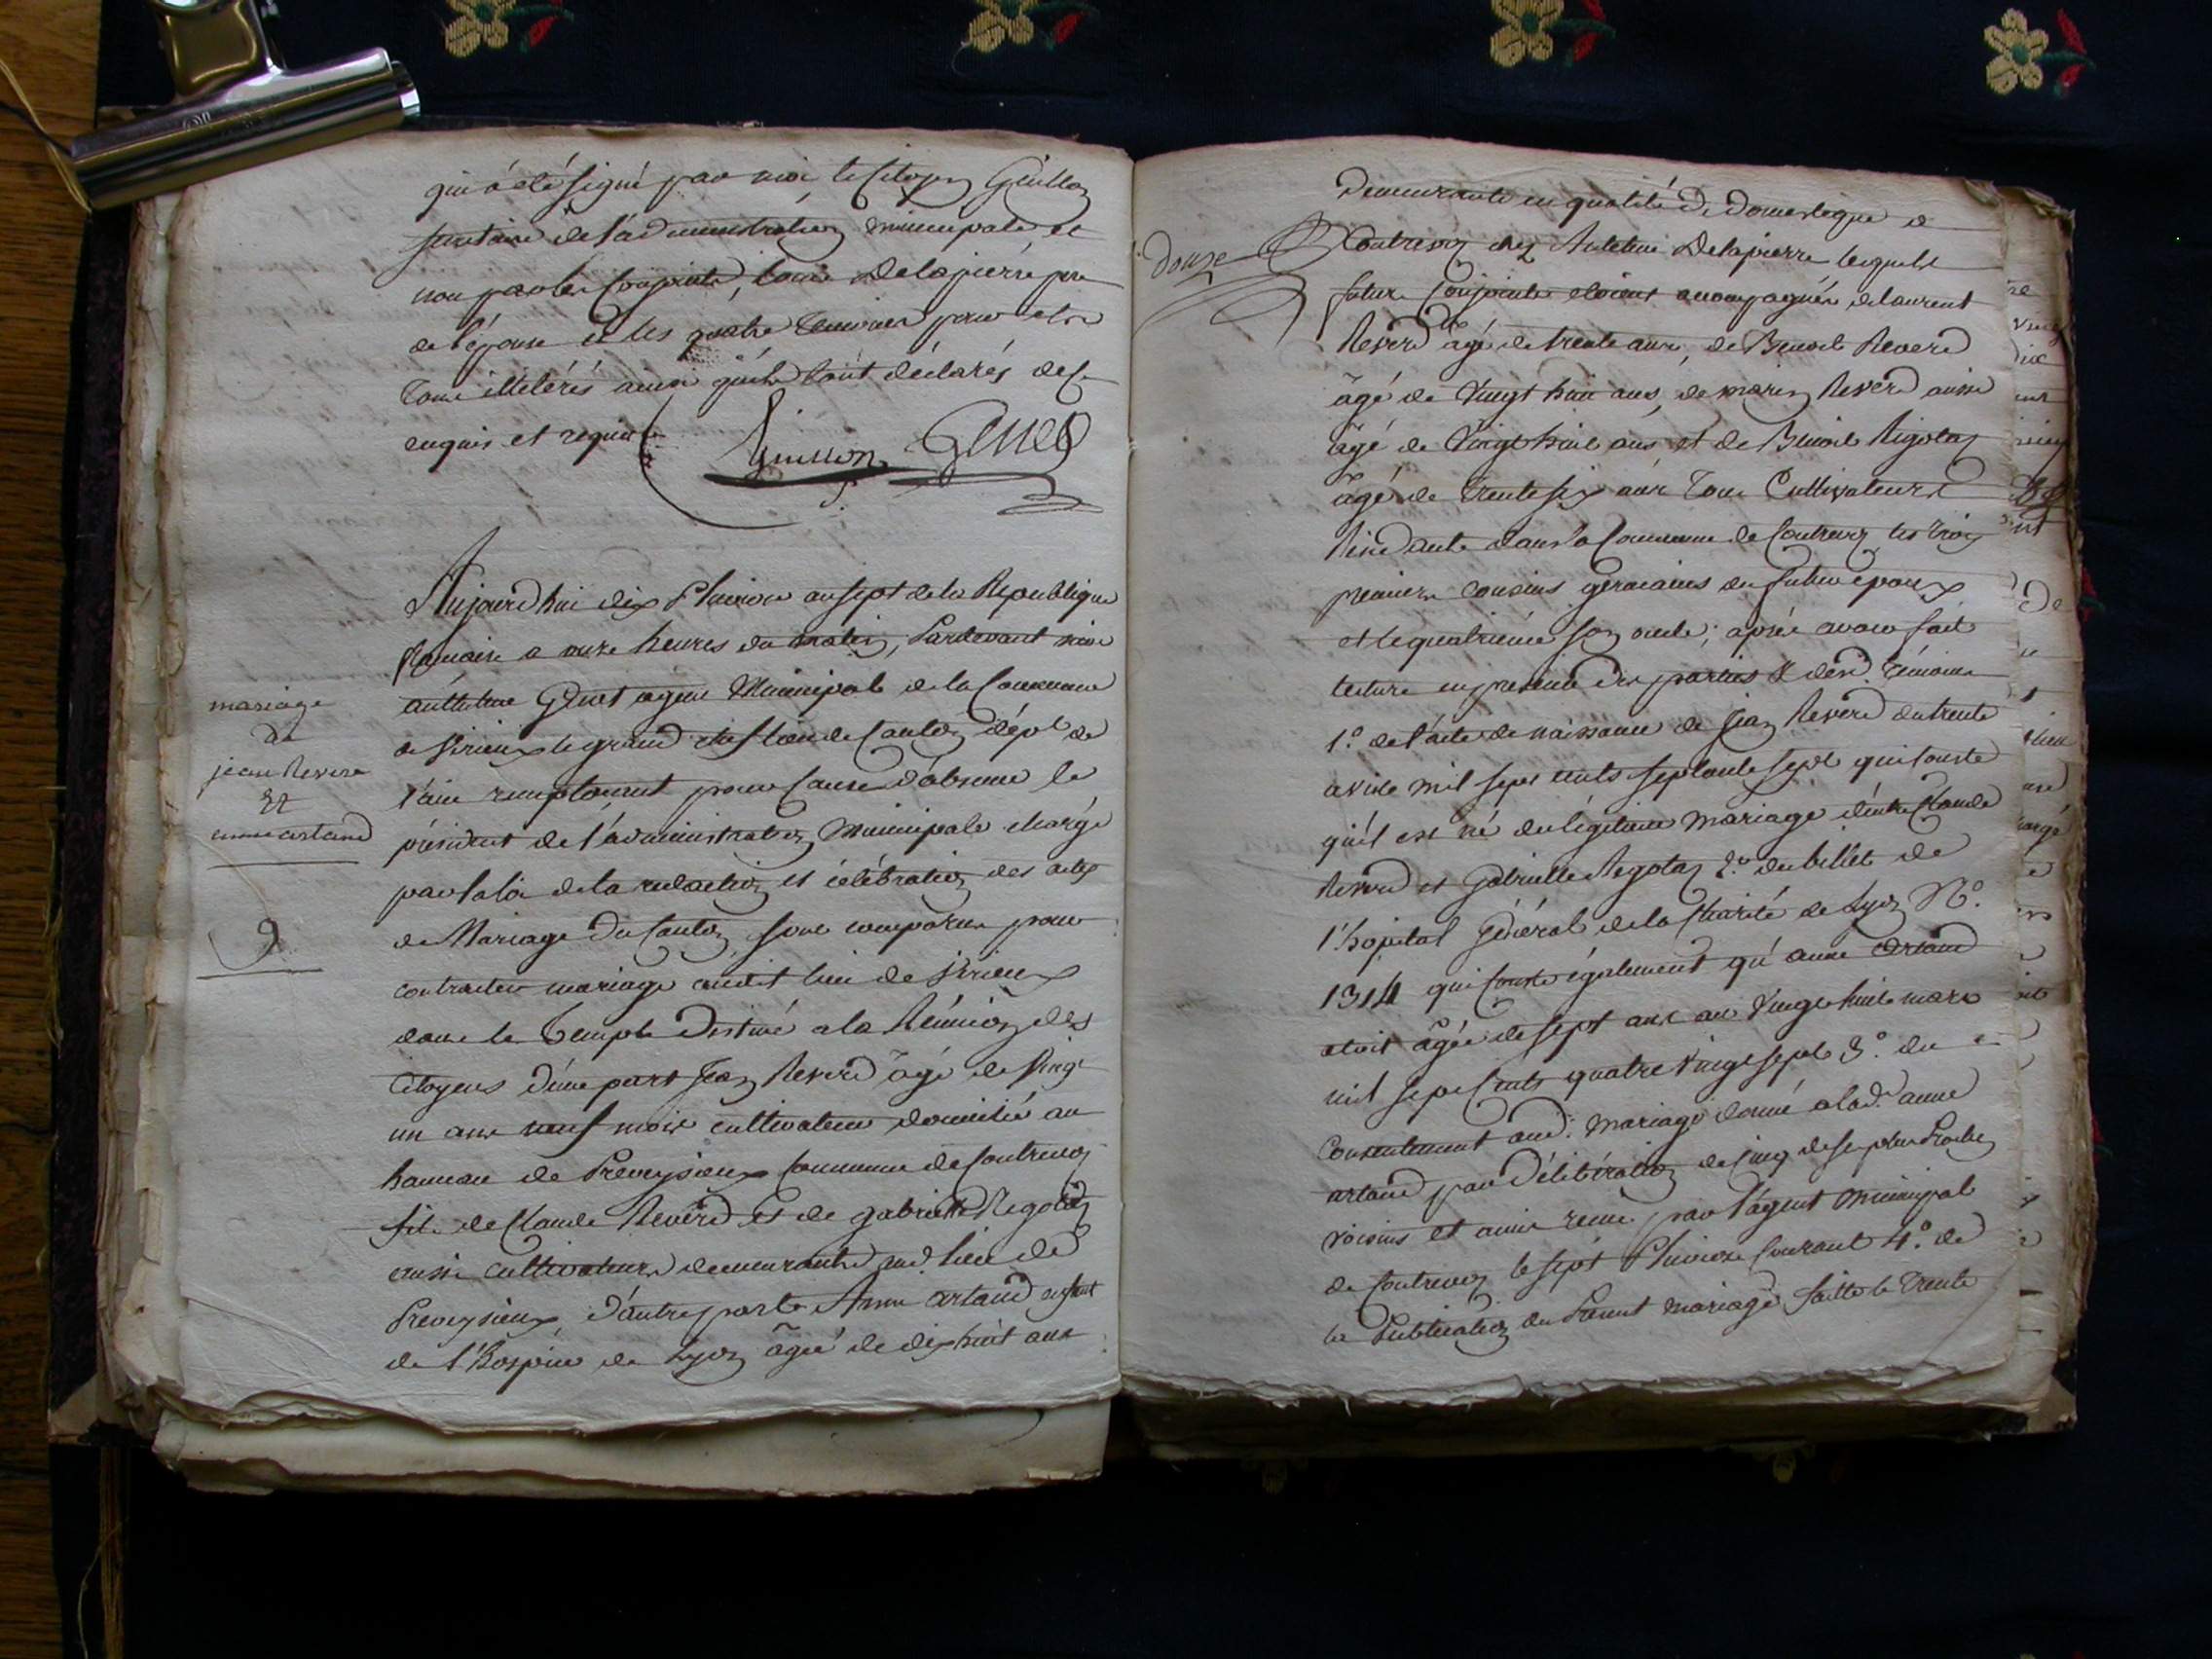 qui a été signé par moi le Citoyen Guillon
secretaire de l'administration municipale et
non par les Conjoints, Louis Delapierre pere
de l'épouse et les quatre temoins pour etre
tous illétérés ainsi qu'ils l'ont déclarés de ce
enquis et requis
Guillon Genet
Aujourd'hui dix Pluviose an sept de la Republique
française a onze heures du matin, Pardevant moi
anthelme Genet agent Municipal de la Commune
de Virieux le grand chef lieu de Canton dépt de
l'ain remplacant pour Cause d'absence le
président de l'administration Municipale chargé
par la loi de la redaction et célébration des actes
de Mariage du Canton, sont comparus pour
contracter mariage audit lieu de Virieux
dans le Temple destiné a la Réunion des
Citoyens d'une part Jean Reverd âgé de vingt
un ans neuf mois cultivateur domicilié au
hameau de Preveysieux Commune de Contrevoz
fils de Claude Reverd et de gabrielle Regotaz
aussi cultivateurs demeurants aud. lieu de
Preveysieux, d'autre parte Anne artaud enfant
de l'hospice de Lyon âgée de dixhuit ans
mariage
de
jean Reverd
Et
anne artaud
9
douze
demeurante en qualité de domestique a
Contrevoz chez Antelme Delapierre lesquels
futurs Conjoints etoient accompagnés de laurent
Reverd âgé de trente ans, de Benoit Reverd
âgé de vingt huit ans, de marin Reverd aussi
âgé de vingt huit ans et de Benoit Rigotaz
âgé de trente six ans tous Cultivateurs
Residants dans la Commune de Contrevoz les trois
premiers cousins germains du futur epoux
et le quatrieme son oncle; après avoir fait
lecture en presence des parties & desd. témoins
1.º de l'acte de naissance de Jean Reverd du trente
avril mil sept cents septante sept qui conste
qu'il est né du légitime mariage d'entre Claude
Reverd et Gabrielle Regotaz 2.º du billet de
l'hopital Général de la Charité de Lyon N.º
1314 qui conste également qu'anne artaud
etoit âgée de sept ans au vingt huit mars
mil sept Cents quatre vingt sept 3.º du
Consentement aud. mariage donné a lad. anne
artaud par délibération de cinq de ses plus Proches
voisins et amis reçue par l'agent municipal
de Contrevoz le sept Pluviose Courant 4.º de
la Publication du Present mariage faitte le trente